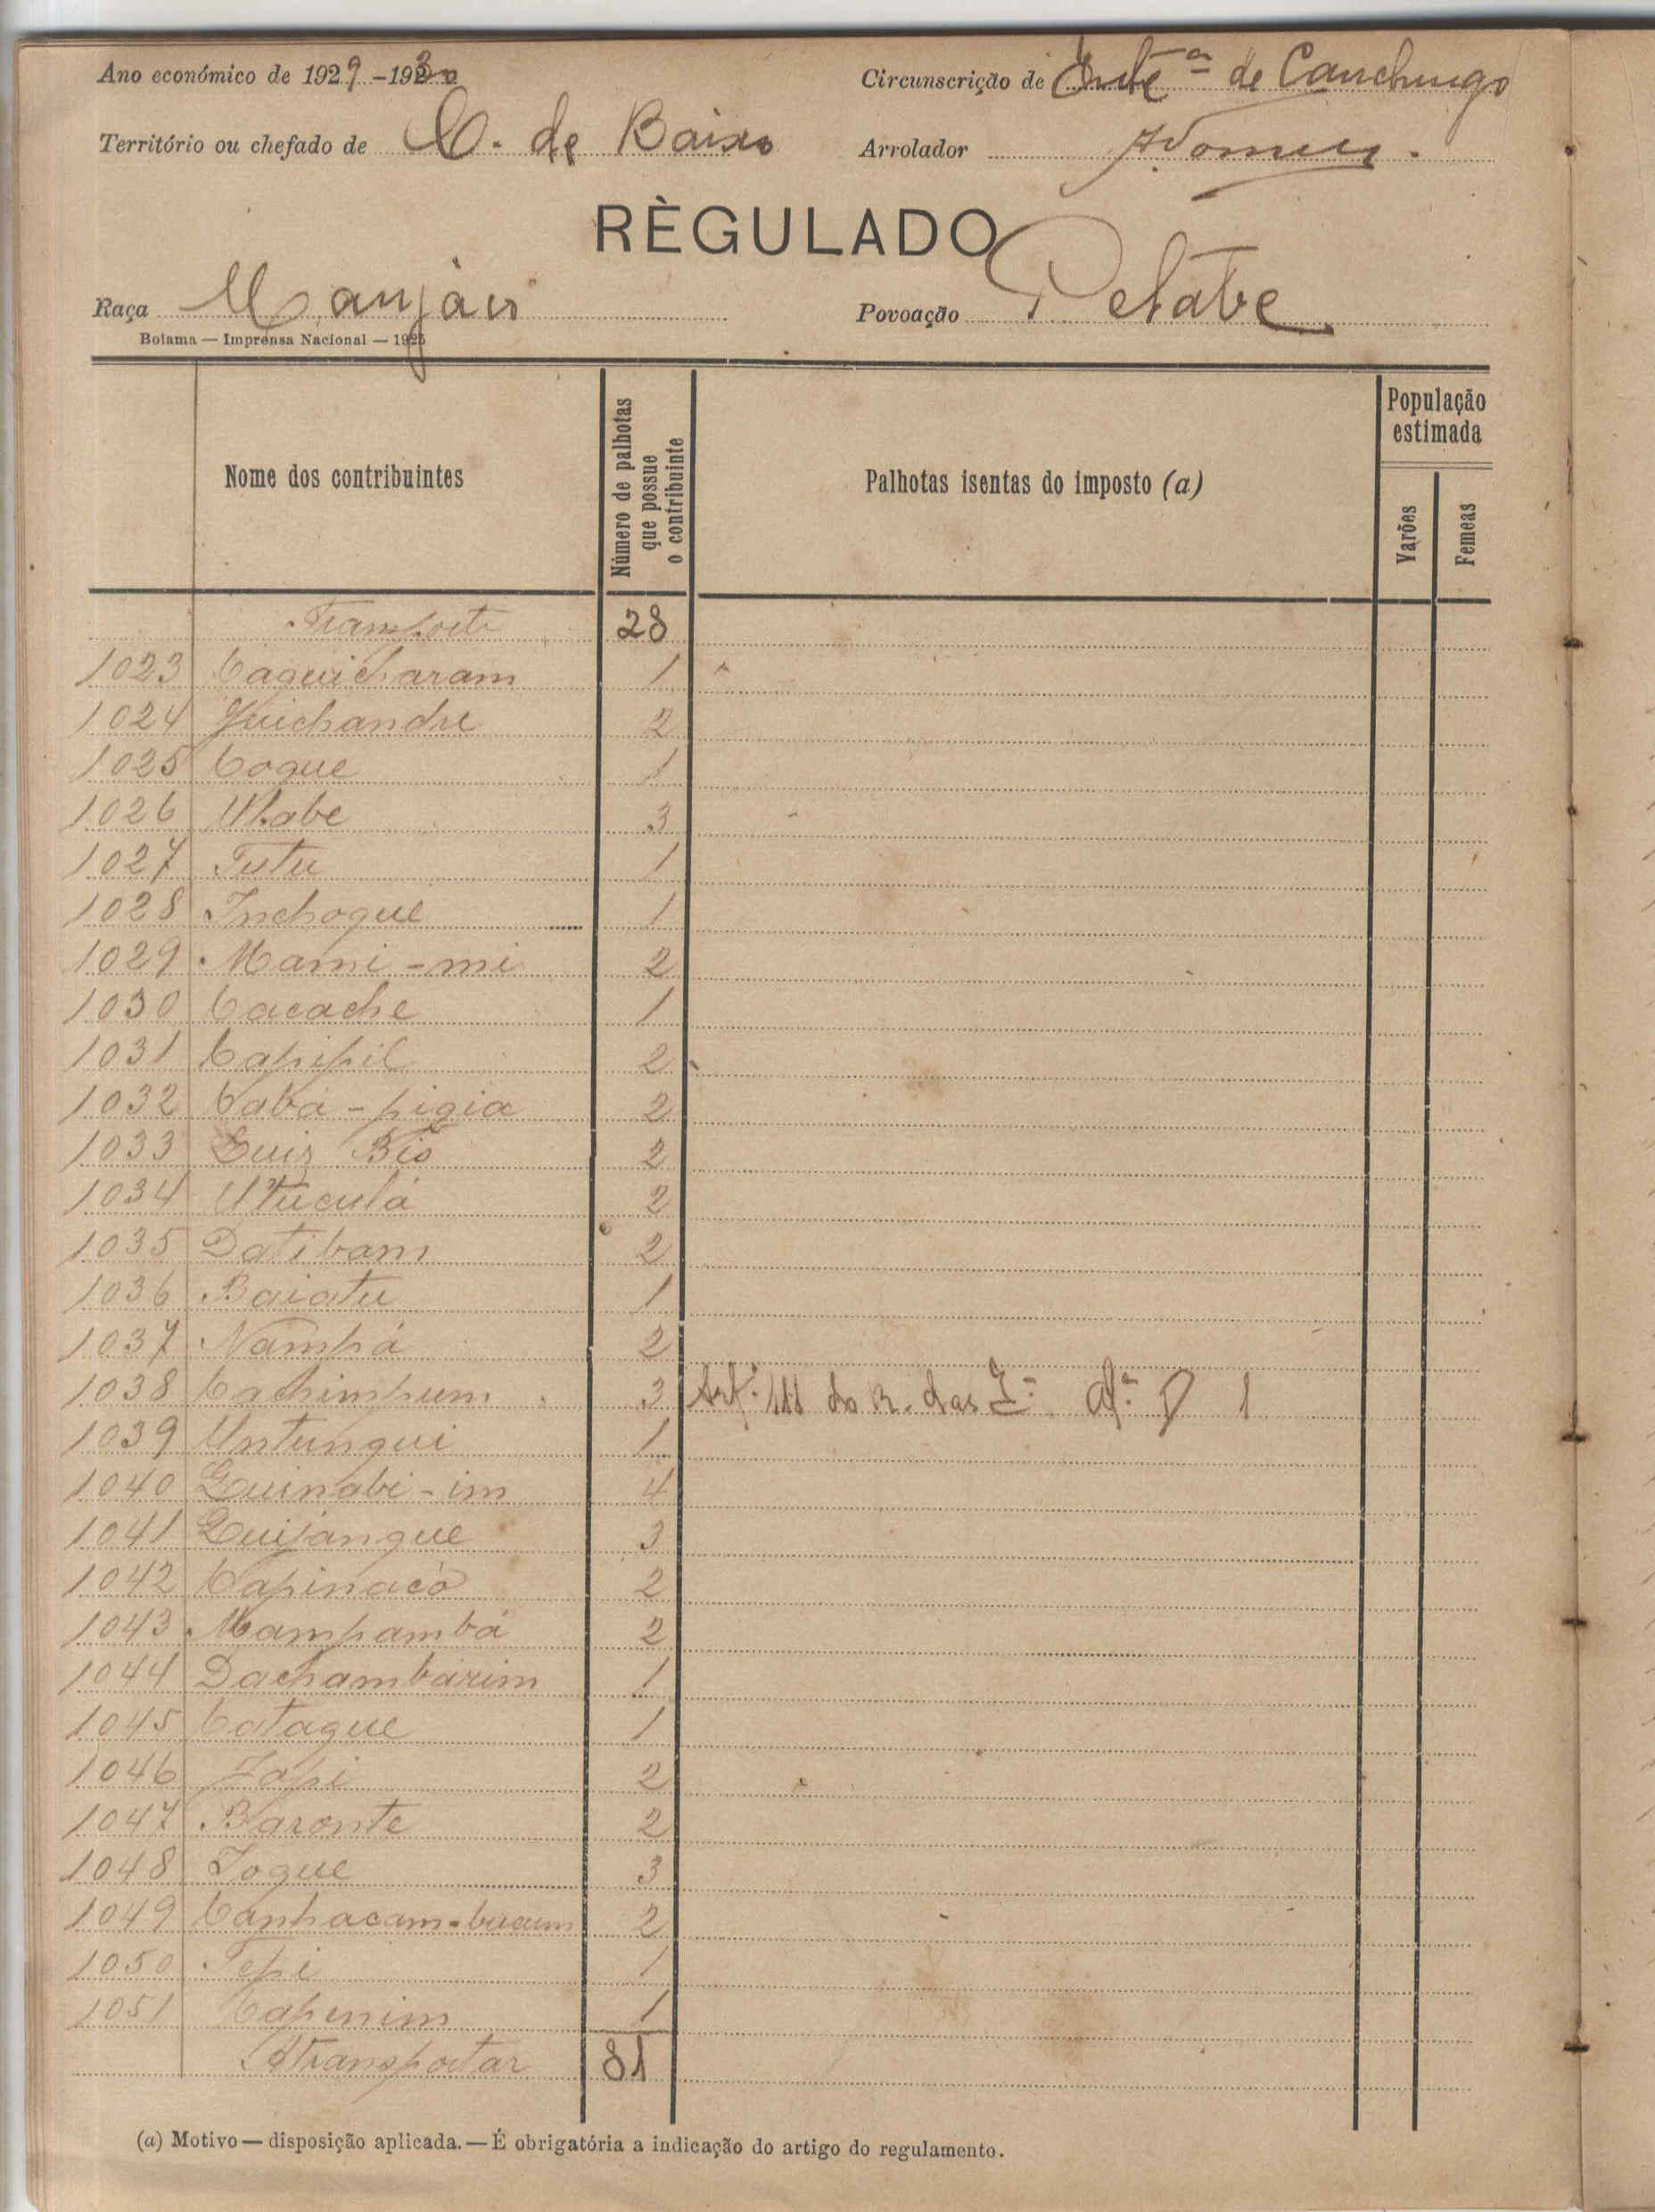 Ano económico de 1929-1930
Circunscrição de de Canchungo
Território ou chefado de C. de Baixo
Arrolador
RÈGULADO
Raça Manjaco
Povoação Petabe
Bolama — Imprensa Nacional — 1925
Nome dos contribuintes
Número de palhotas que possue o contribuinte
Palhotas isentas do imposto (a)
População estimada
Varões
Femeas
Transporte 28
1023 Caquicharam 1
1024 Guichandre 2
1025 Coque 1
1026 Ulabe 3
1027 Tutu 1
1028 Inchoque 1
1029 Mami-mi 2
1030 Cacache 1
1031 Capipil 2
1032 Cabá-pigia 2
1033 Luiz Bió 2
1034 Utuculá 2
1035 Datibam 2
1036 Baiatu 1
1037 Nampá 2
1038 Cachimpum 3 Artº 111 do R. das 1
1039 Untungui 1
1040 Quinabi-im 4
1041 Quijangue 3
1042 Capinacó 2
1043 Mampambá 2
1044 Dachambarim 1
1045 Cataque 1
1046 Japi 2
1047 Baronte 2
1048 Joque 3
1049 Canhacam-bucum 2
1050 Tepi 1
1051 Capenim 1
A Transportar 81
(a) Motivo — disposição aplicada. — É obrigatória a indicação do artigo do regulamento.